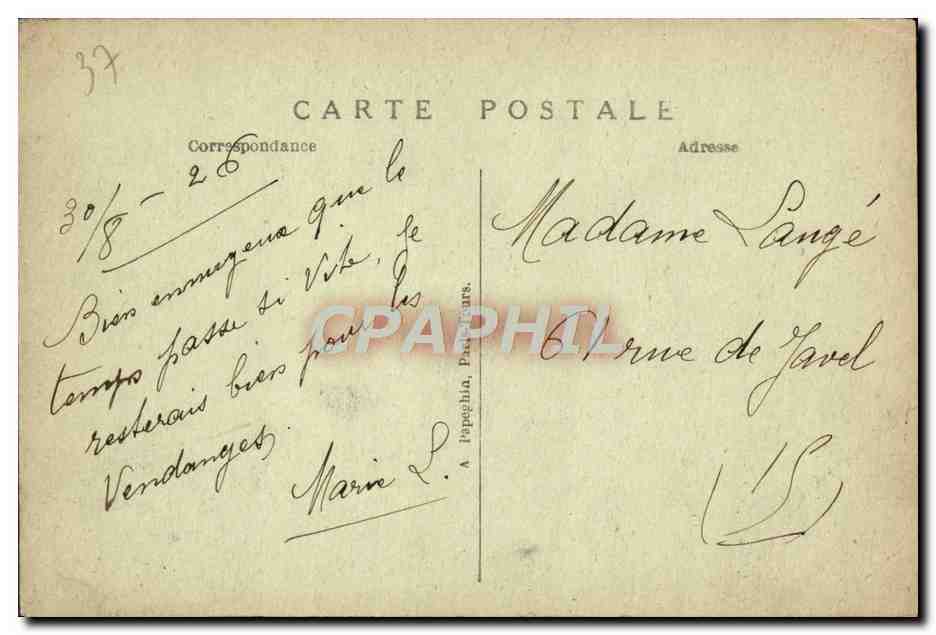 37
CARTE POSTALE
Correspondance
Adresse
30/8 - 26
Bien ennuyeux que le
temps passe si Vite, je
resterais bien pour les
Vendanges
Marie L.
A Papeghin, Paris-Tours.
Madame Langé
61 rue de Javel
(15)
CPAPHIL